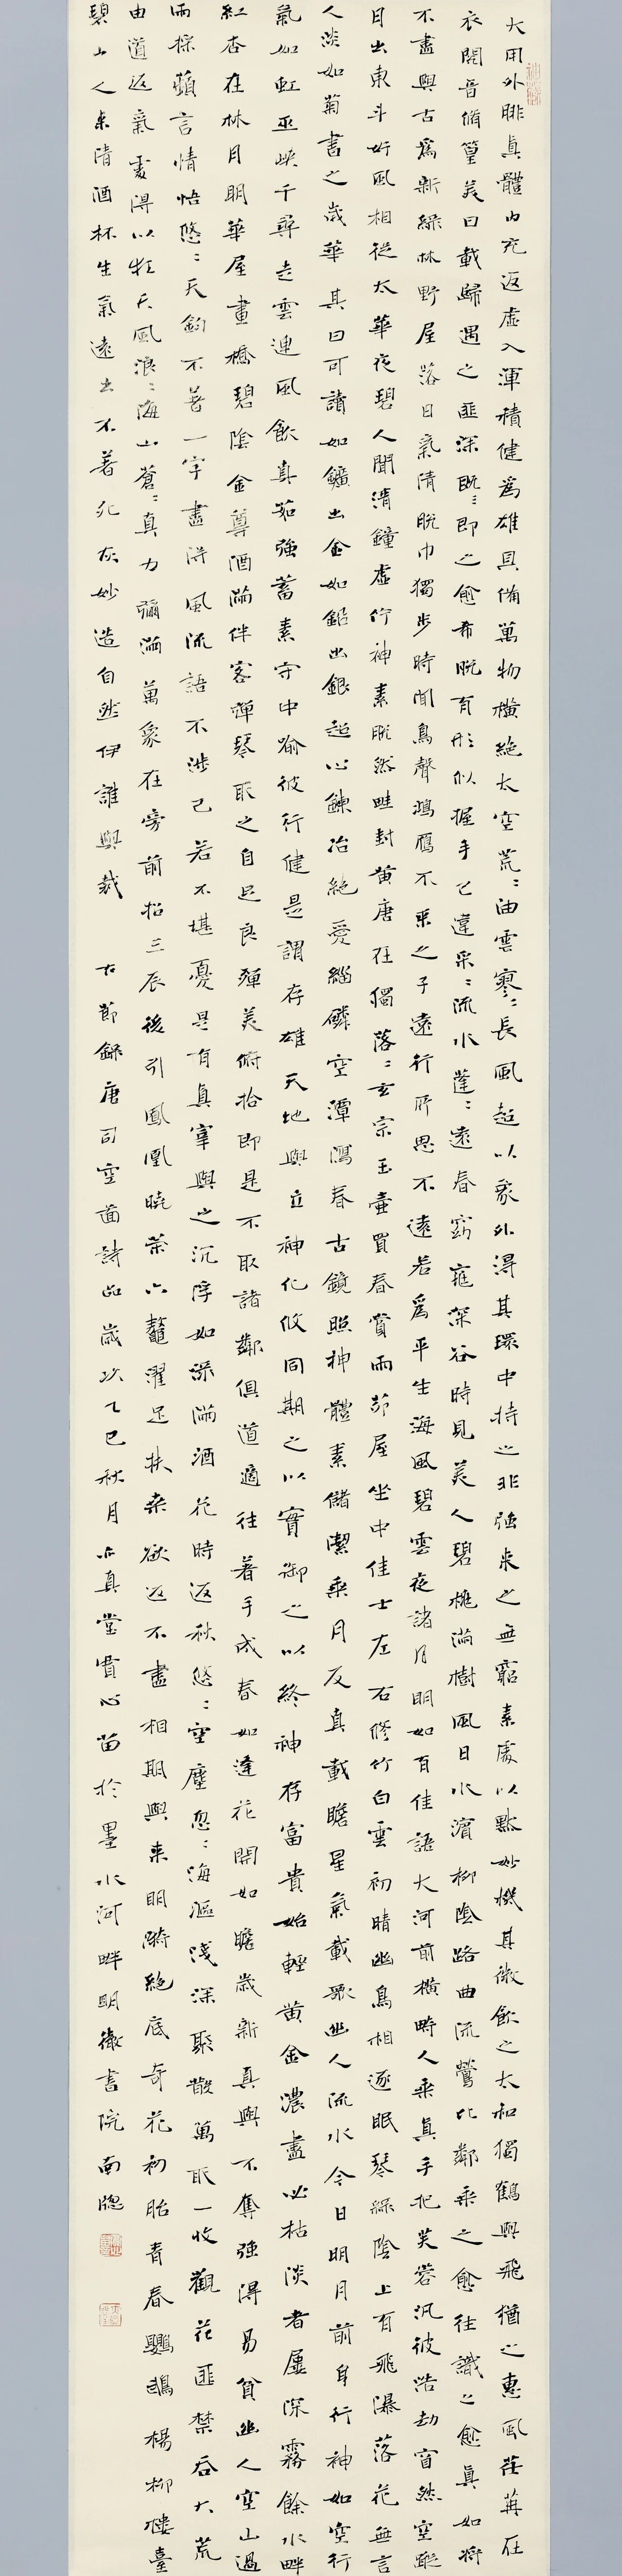 大用外腓真體内充返虛入渾積健為雄具備萬物橫絕太空荒荒油雲寥寥長風超以象外得其環中持之非強來之無窮素處以默妙機其微飲之太和獨鶴與飛猶之惠風荏苒在
衣閱音脩篁美曰載歸遇之匪深即之愈希脫有形似握手已違采采流水蓬蓬遠春窈窕深谷時見美人碧桃滿樹風日水濱柳陰路曲流鶯比鄰乘之愈往識之愈真如將
不盡與古為新綠林野屋落日氣清脫巾獨步時聞鳥聲鴻雁不來之子遠行所思不遠若為平生海風碧雲夜渚月明如有佳語大河前橫畸人乘真手把芙蓉汎彼浩劫窅然空蹤
月出東斗好風相從太華夜碧人聞清鐘虛佇神素脫然畦封黃唐在獨落落玄宗玉壺買春賞雨茆屋坐中佳士左右修竹白雲初晴幽鳥相逐眠琴綠陰上有飛瀑落花無言
人淡如菊書之歲華其曰可讀如鑛出金如鉛出銀超心鍊冶絕愛緇磷空潭瀉春古鏡照神體素儲潔乘月反真載瞻星氣載歌幽人流水今日明月前身行神如空行
氣如虹巫峽千尋走雲連風飲真茹強蓄素守中喻彼行健是謂存雄天地與立神化攸同期之以實御之以終神存富貴始輕黃金濃盡必枯淡者屢深霧餘水畔
紅杏在林月明華屋畫橋碧陰金尊酒滿伴客彈琴取之自足良殫美俯拾即是不取諸鄰俱道適往著手成春如逢花開如瞻歲新真與不奪強得易貧幽人空山過
雨採蘋言情悟悠悠天鈞不著一字盡得風流語不涉己若不堪憂是有真宰與之沉浮如淥滿酒花時返秋悠悠空塵忽忽海漚淺深聚散萬取一收觀花匪禁吞大荒
由道返氣處得以狂天風浪浪海山蒼蒼真力彌滿萬象在旁前招三辰後引鳳凰曉策六鼇濯足扶桑欲返不盡相期與來明漪絕底奇花初胎青春鸚鵡楊柳樓臺
碧山人來清酒杯生氣遠出不著死灰妙造自然伊誰與裁 右節錄唐司空圖詩品歲次乙巳秋月亦真堂實心苗於墨水河畔明徵書院南牕